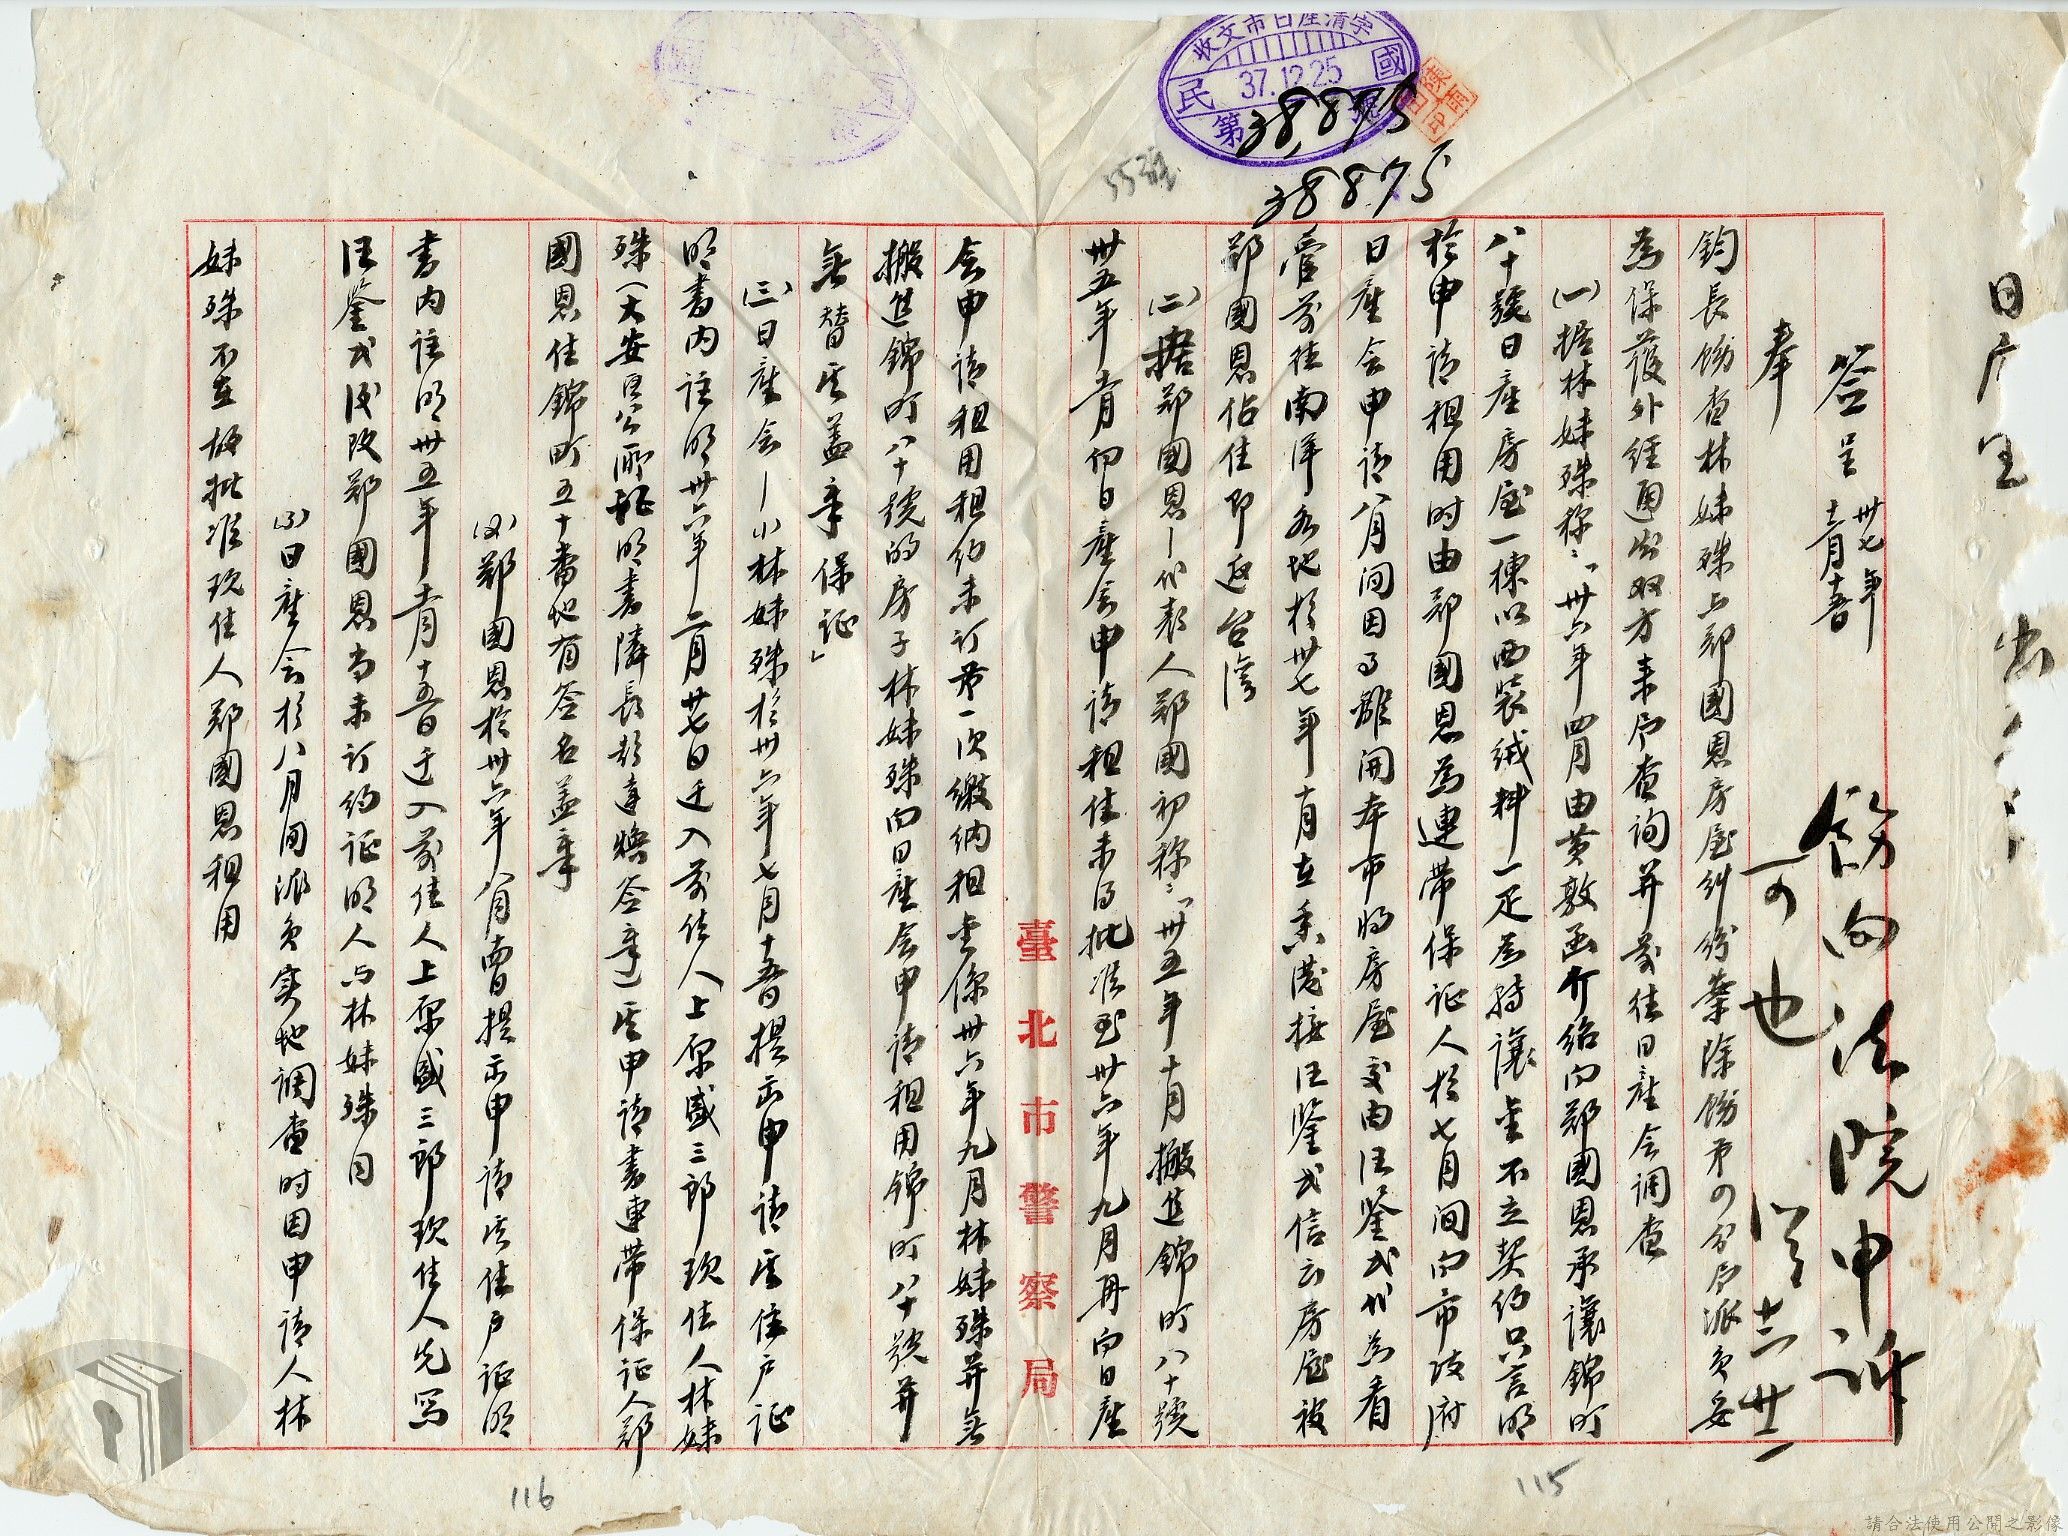 收文市日產清字
民國
37.12.25
第38,875號
38875
日产
簽呈 卅七年
飭向法院申訴
可也
奉
鈞長飭查林妹珠与鄭國恩房屋糾紛案除飭第四分局派員妥
為保護外經通知双方來局查詢并前往日產会調查
(一)據林妹珠称：「卅六年四月由黃敦函介紹向鄭國恩承讓錦町
八十號日產房屋一棟以西裝絨料一疋為轉讓金不立契約只言明
於申請租用时由鄭國恩為連帶保证人於七月间向市政府
日產会申請八月间因事離開本市將房屋交由汪鑒武代為看
管前往南洋各地於卅七年十月在香港接汪鑒武信云房屋被
鄭國恩佔住即返台湾
(二)据鄭國恩—代表人鄭國初称：「卅五年十月搬進錦町八十號
卅五年十一月向日產会申請租住未得批准至卅六年九月再向日產
会申請租用租约未订第一次缴纳租金係卅六年九月林妹珠并無
搬進錦町八十號的房子林妹珠向日產会申請租用錦町八十號并
無替其蓋章保证」
(三)日產会—(1)林妹珠於卅六年七月十五日提出申請其住户证
明書内註明卅六年二月廿七日迁入前住人上原盛三郎現住人林妹
珠(大安區公所証明書隣長彭達煥签章)其申請書連帶保证人鄭
國恩住錦町五十番地有签名盖章
(2)鄭國恩於卅六年八月 提示申請其住户证明
書内註明卅五年十一月十五日迁入前住人上原盛三郎現住人先寫
汪鑒武後改鄭國恩尚未订约证明人与林妹珠同
(3)日產会於八月间派員实地調查时因申請人林
妹珠不在故批准現住人鄭國恩租用
臺北市警察局
115
116
請合法使用公開之影像